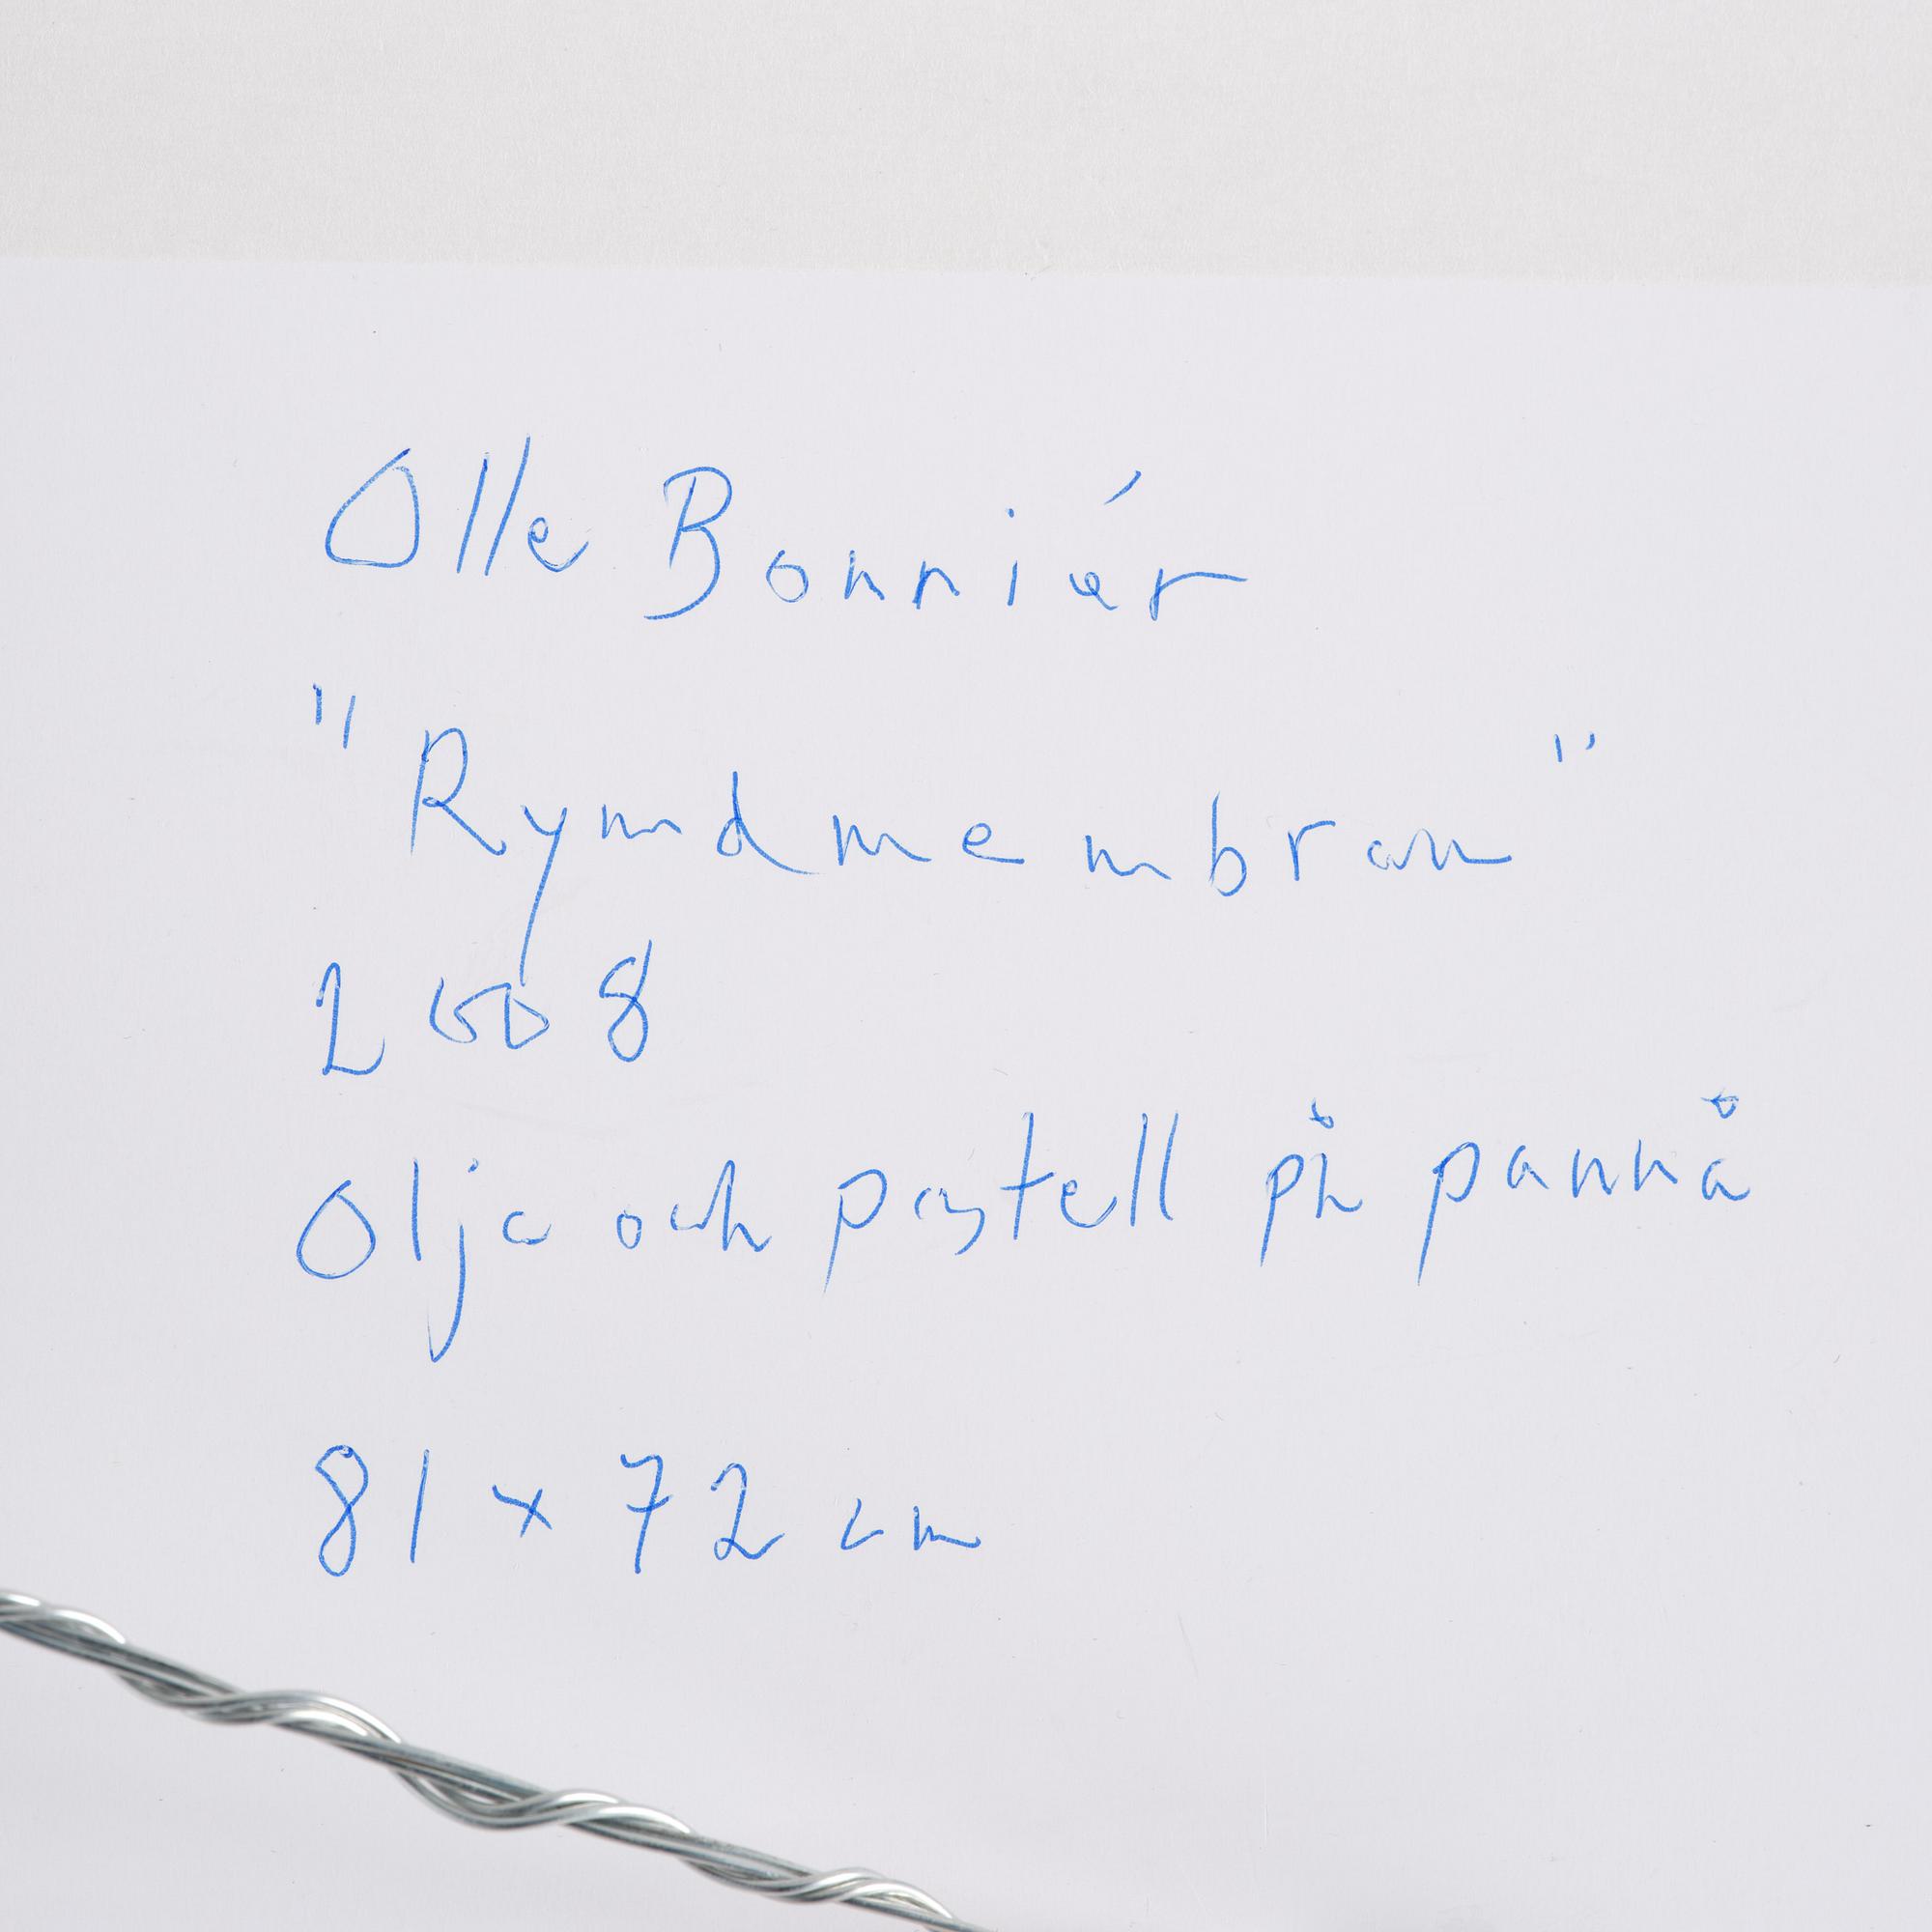 Olle Bonniér
"Rymdmembran"
2008
Olja och pastell på pannå
81 x 72 cm